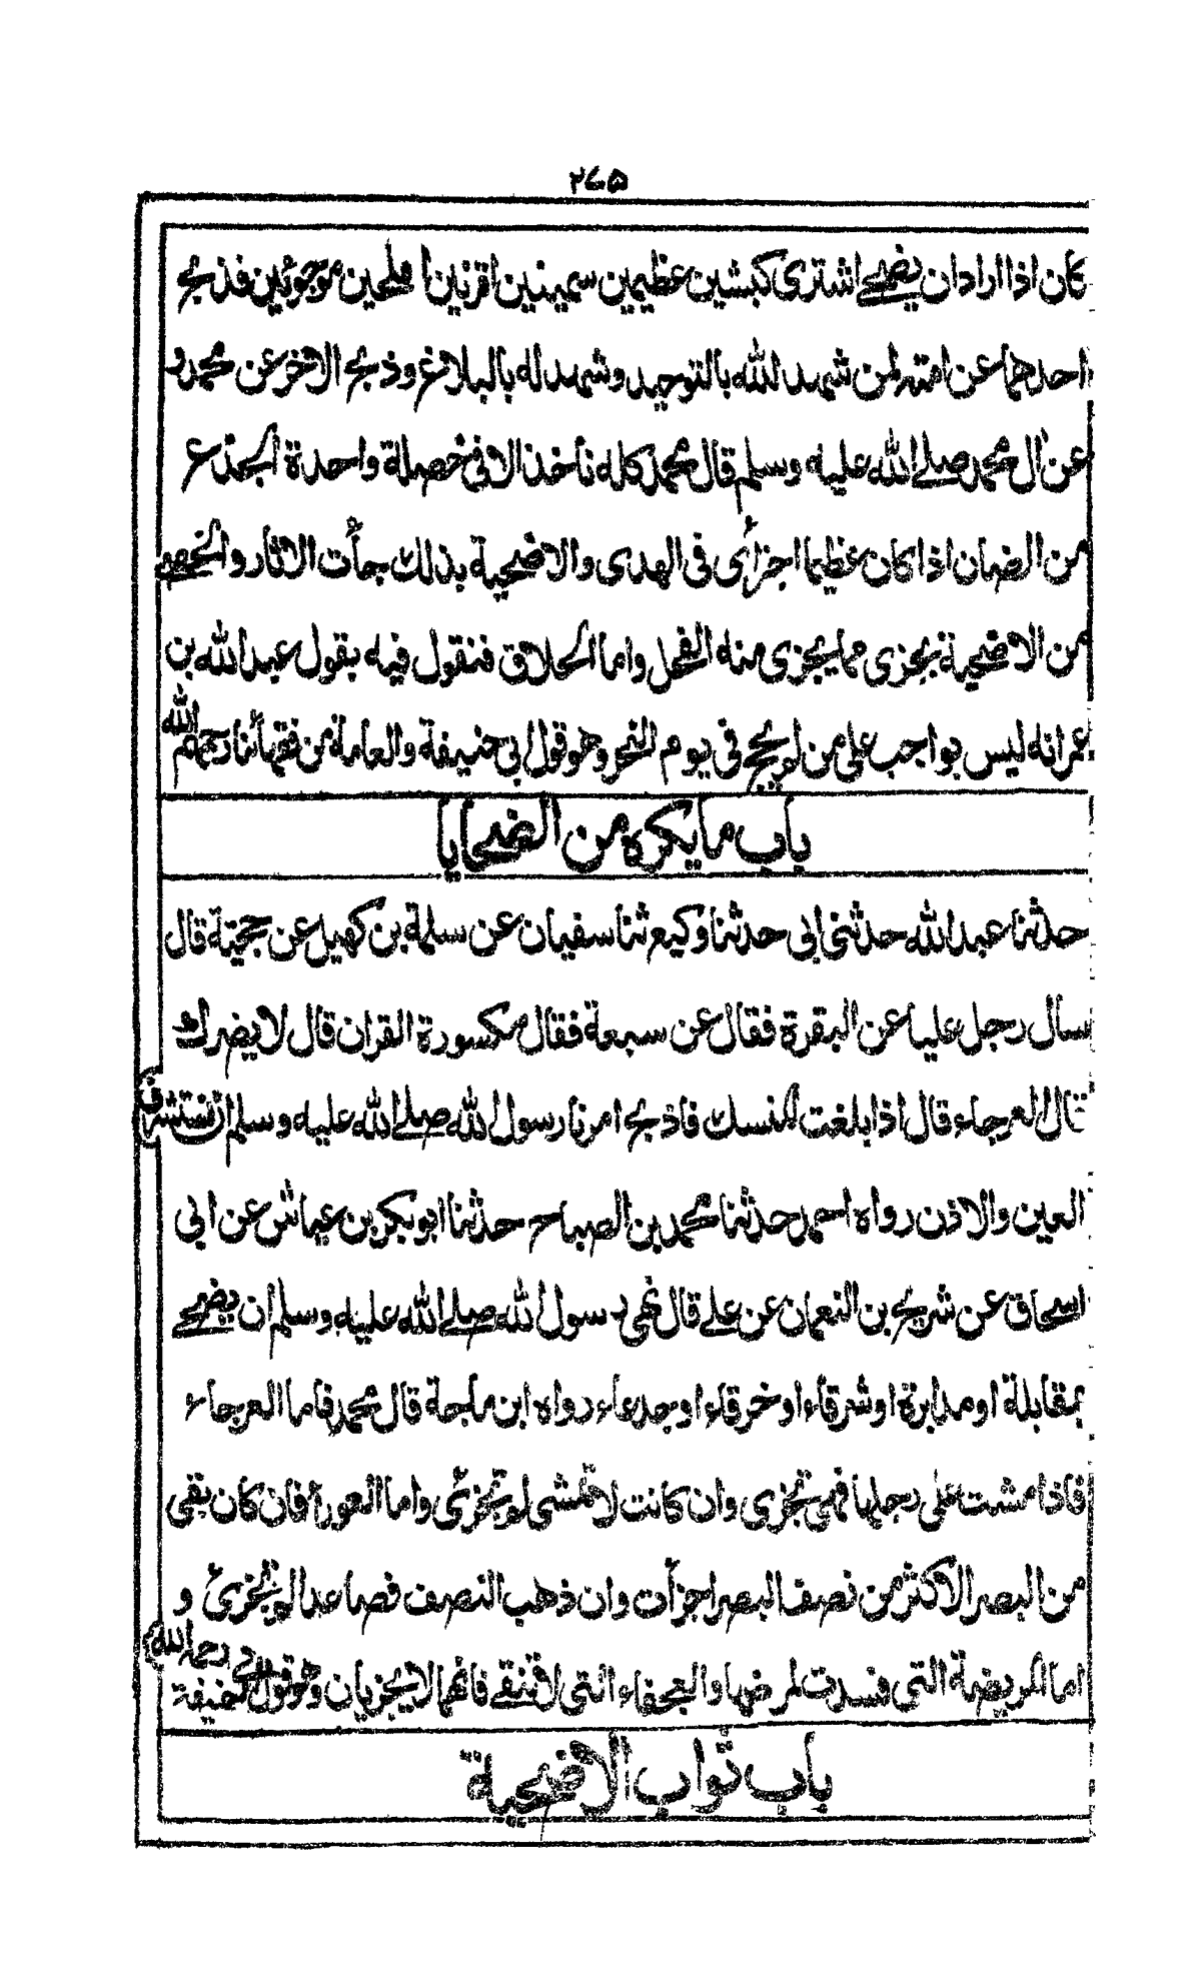 ٢٧٥
كان اذا اراد ان يضحے اشترى كبشين عظيمين سمينين اقرنين املحين موجوئين فذبح
احدهما عن امته لمن شهد لله بالتوحيد وشهد له بالبلاغ وذبح الاخر عن محمد و
عن ال محمد صلے الله عليه وسلم قال محمد كله ناخذ الا فى خصلة واحدة الجذع
من الضان اذا كان عظيما اجزأى فى الهدى والاضحية بذلك جأت الاثار والخصے
من الاضحية يجزى مما يجزى منه الفحل واما الحلاق فنقول فيه بقول عبد الله بن
عمر انه ليس بواجب على من لم يحج فى يوم النحر وهو قول ابى حنيفة والعامة من فقهائنا رحمهم الله
باب ما يكره من الضحايا
حدثنا عبد الله حدثنى ابى حدثنا وكيع ثنا سفيان عن سلمة بن كهيل عن حجية قال
سال رجل عليا عن البقرة فقال عن سبعة فقال مكسورة القران قال لا يضرك
قال العرجاء قال اذا بلغت المنسك فاذبح امرنا رسول الله صلے الله عليه وسلم ان نستشرف
العين والاذن رواه احمد حدثنا محمد بن الصباح حدثنا ابو بكر بن عياش عن ابى
اسحاق عن شريح بن النعمان عن علے قال نهى رسول الله صلے الله عليه وسلم ان يضحے
بمقابلة او مدابرة او شرقاء او خرقاء او جدعاء رواه ابن ماجة قال محمد فاما العرجاء
فاذا مشت على رجلها فهى تجزى وان كانت لا تمشى لم تجزئ واما العورأ فان كان بقى
من البصر الاكثر من نصف البصر اجزأت وان ذهب النصف فصاعدا لم تجزئ و
اما المريضة التى فسدت لمرضها والعجفاء التى لا تنقے فانهما لا يجزيان وهو قول ابى حنيفة رحمه الله
باب ثواب الاضحية